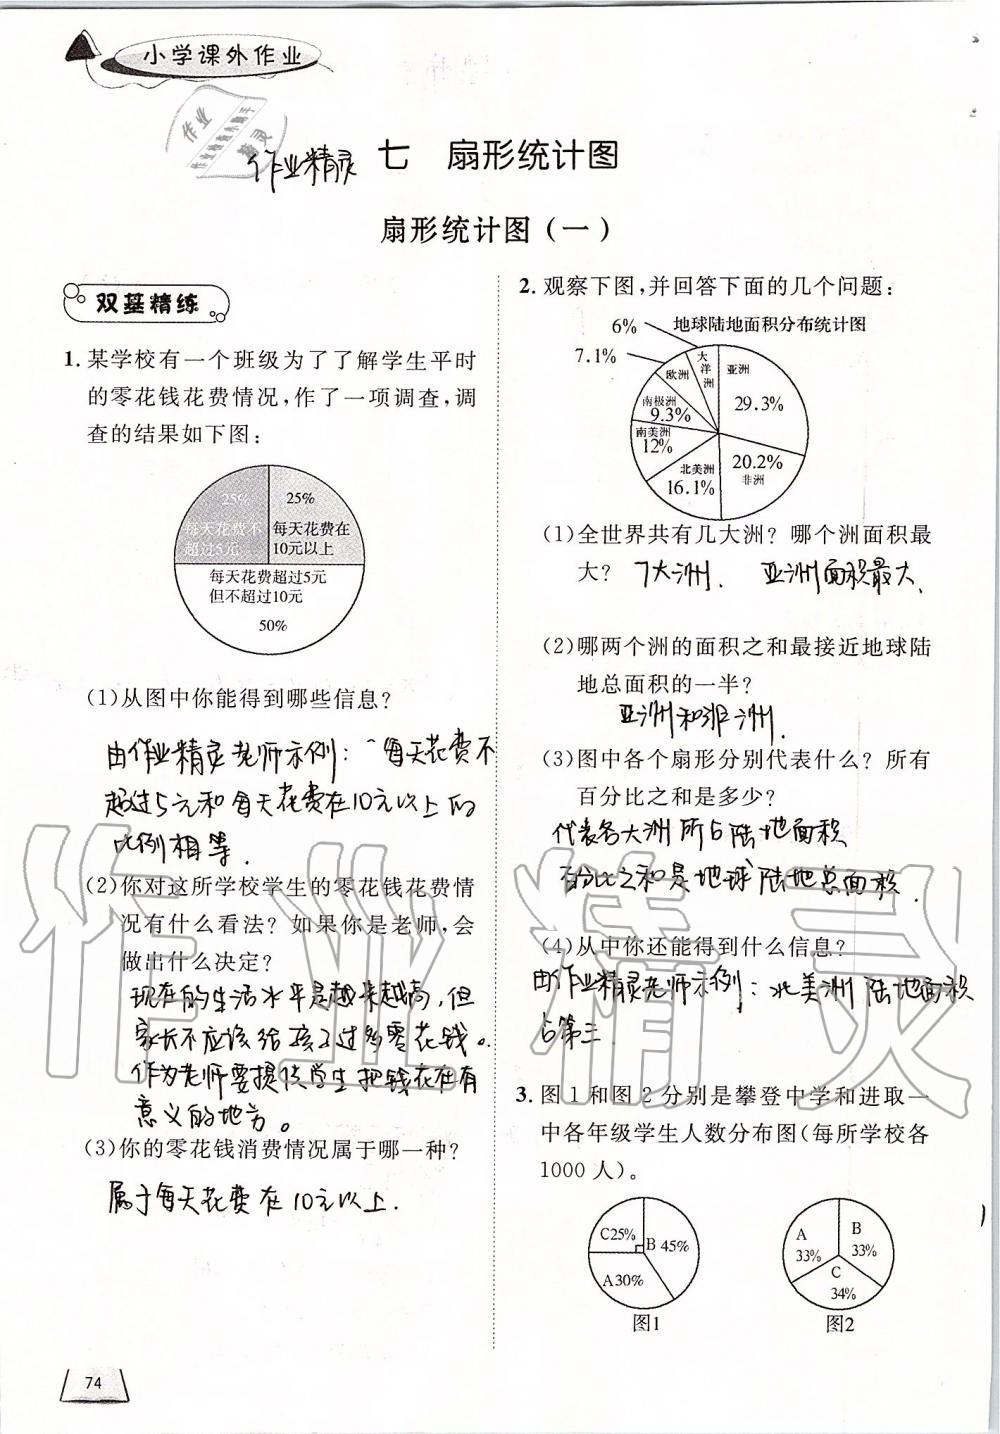 小学课外作业
作业
作业检查小助手
精灵
作业精灵
七 扇形统计图
扇形统计图(一)
双基精练
1. 某学校有一个班级为了了解学生平时
的零花钱花费情况,作了一项调查,调
查的结果如下图:
25%
每天花费不
超过5元
25%
每天花费在
10元以上
每天花费超过5元
但不超过10元
50%
(1)从图中你能得到哪些信息?
由作业精灵老师示例:每天花费不
超过5元和每天花费在10元以上的
比例相等.
(2)你对这所学校学生的零花钱花费情
况有什么看法?如果你是老师,会
做出什么决定?
现在的生活水平是越来越高,但
家长不应该给孩子过多零花钱。
作为老师要提倡学生把钱花在有
意义的地方。
(3)你的零花钱消费情况属于哪一种?
属于每天花费在10元以上.
2. 观察下图,并回答下面的几个问题:
地球陆地面积分布统计图
6%
7.1%
大洋洲
欧洲
亚洲
29.3%
南极洲
9.3%
南美洲
12%
北美洲
16.1%
20.2%
非洲
(1)全世界共有几大洲?哪个洲面积最
大? 7大洲. 亚洲面积最大.
(2)哪两个洲的面积之和最接近地球陆
地总面积的一半?
亚洲和非洲.
(3)图中各个扇形分别代表什么?所有
百分比之和是多少?
代表各大洲所占陆地面积
百分比之和是地球陆地总面积.
(4)从中你还能得到什么信息?
由作业精灵老师示例:北美洲陆地面积
占第三
3. 图1和图2分别是攀登中学和进取一
中各年级学生人数分布图(每所学校各
1000人)。
C25%
B 45%
A30%
图1
A
33%
B
33%
C
34%
图2
74
作业精灵